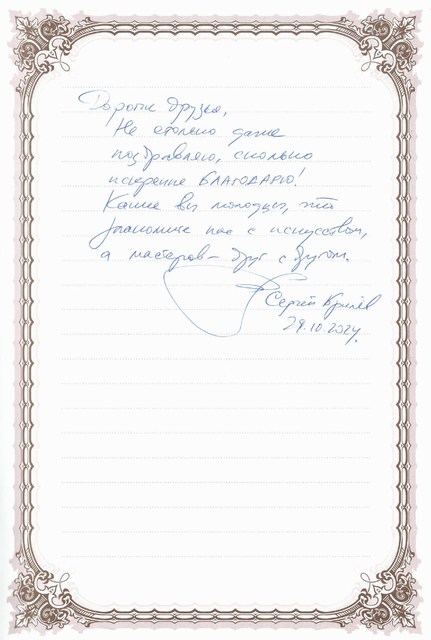 Дорогие друзья,
Не столько даже
поздравляю, сколько
искренне БЛАГОДАРЮ!
Какие вы молодцы, что
знакомите нас с искусством,
а мастеров – друг с другом.
Сергей Брилёв
29.10.2024